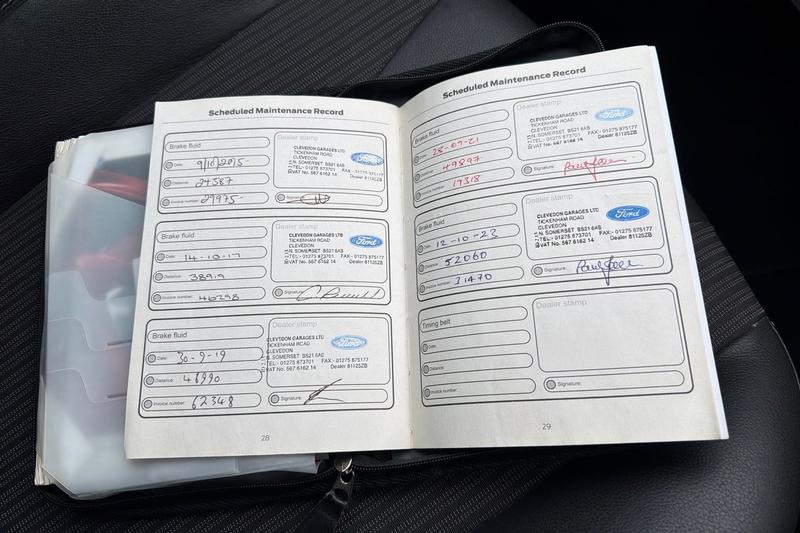 Scheduled Maintenance Record
Brake fluid
Date: 9/10/2015-
Distance: 24587
Invoice number: 29975-
Dealer stamp
CLEVEDON GARAGES LTD
TICKENHAM ROAD
CLEVEDON
N. SOMERSET BS21 6AB
TEL:- 01275 873701 FAX:- 01275 875177
VAT No. 567 6162 14 Dealer 81125ZB
Ford
Signature:
Brake fluid
Date: 14-10-17
Distance: 38919
Invoice number: 46298
Dealer stamp
CLEVEDON GARAGES LTD
TICKENHAM ROAD
CLEVEDON
N. SOMERSET BS21 6AB
TEL:- 01275 873701 FAX:- 01275 875177
VAT No. 567 6162 14 Dealer 81125ZB
Ford
Signature:
Brake fluid
Date: 30-9-19
Distance: 46990
Invoice number: 62348
Dealer stamp
CLEVEDON GARAGES LTD
TICKENHAM ROAD
CLEVEDON
N. SOMERSET BS21 6AB
TEL:- 01275 873701 FAX:- 01275 875177
VAT No. 567 6162 14 Dealer 81125ZB
Ford
Signature:
28
Scheduled Maintenance Record
Brake fluid
Date: 28-09-21
Distance: 49897
Invoice number: 17318
Dealer stamp
CLEVEDON GARAGES LTD
TICKENHAM ROAD
CLEVEDON
N. SOMERSET BS21 6AB
TEL:- 01275 873701 FAX:- 01275 875177
VAT No. 567 6162 14 Dealer 81125ZB
Ford
Signature:
Brake fluid
Date: 12-10-23
Distance: 52060
Invoice number: 31470
Dealer stamp
CLEVEDON GARAGES LTD
TICKENHAM ROAD
CLEVEDON
N. SOMERSET BS21 6AB
TEL:- 01275 873701 FAX:- 01275 875177
VAT No. 567 6162 14 Dealer 81125ZB
Ford
Signature:
Timing belt
Date:
Distance:
Invoice number:
Dealer stamp
Signature:
29